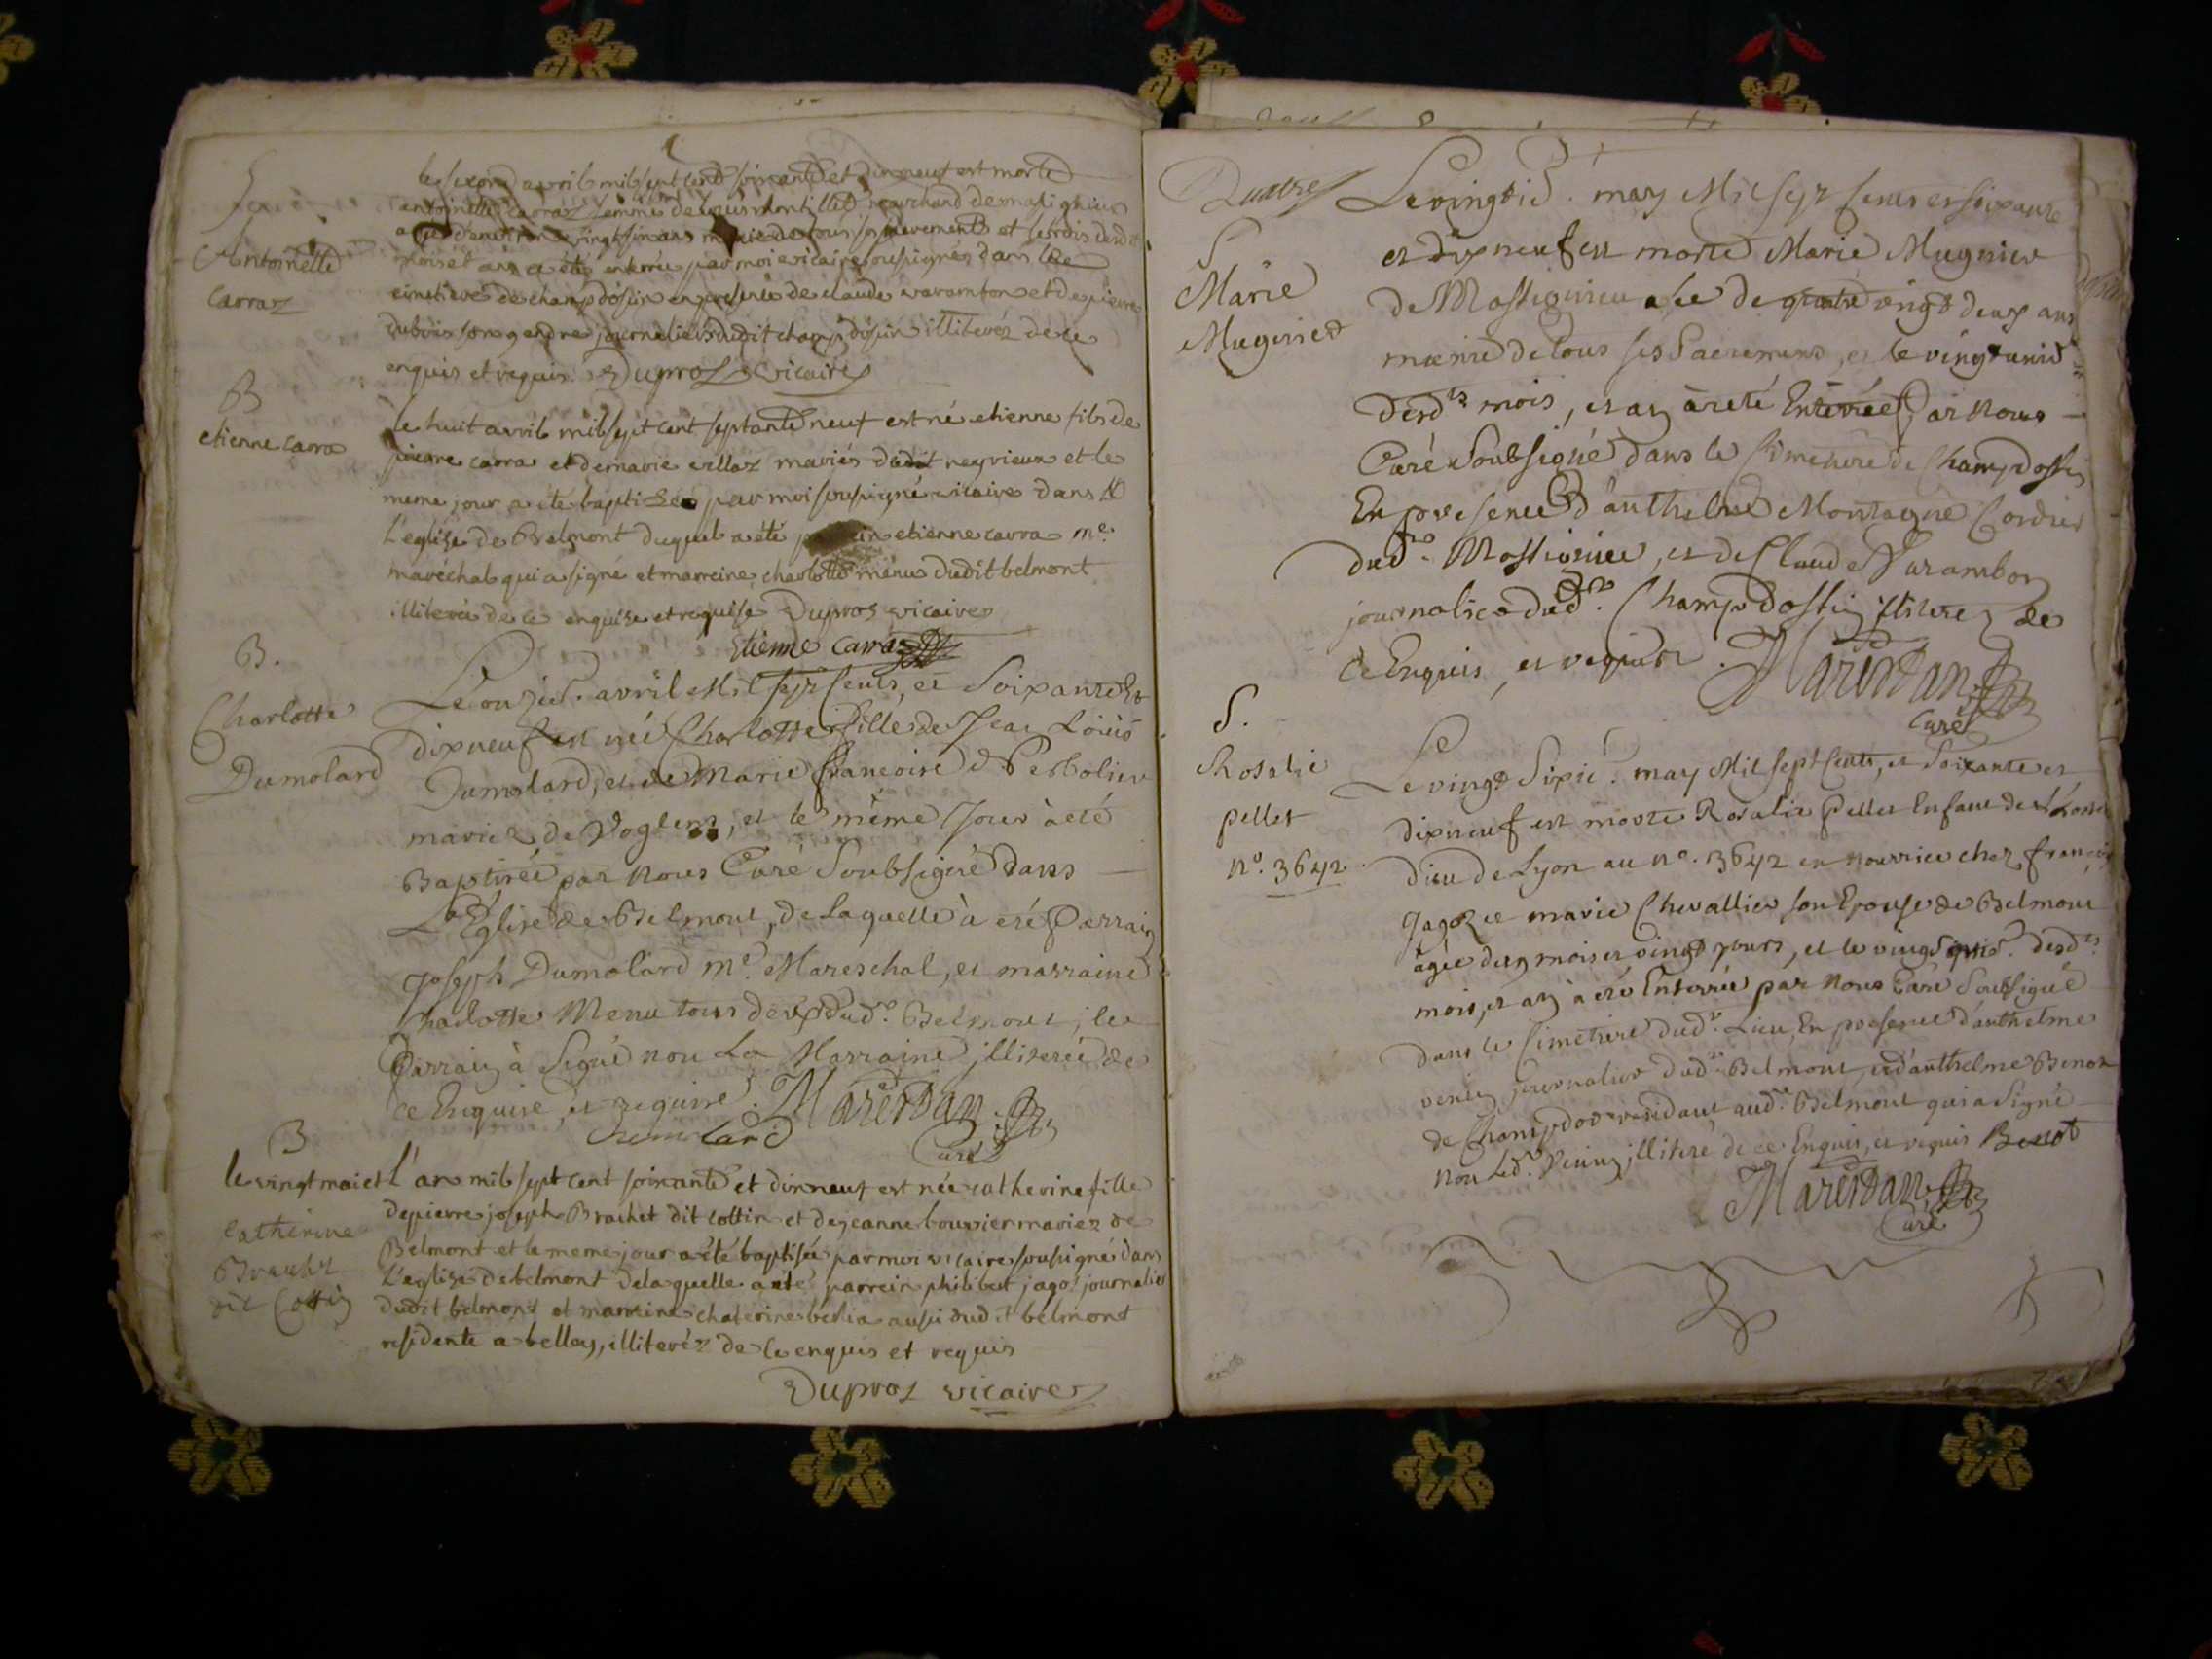 le second avril mil sept cent soixante et dix neuf est morte
antoinette carraz femme de louis montillet marchand de massignieu
agée d'environ vingt six ans munie de tous ses sacrements et le trois desd
mois et an a été enterrée par moi vicaire soussigné dans le
cimetiere de champdossin en presence de claude varambon et de pierre
dubois son gendre journaliers dudit champdossin illiterés de ce
enquis et requis. Duproz vicaire
Antoinette
Carraz
B
etienne carra
le huit avril mil sept cent septante neuf est né etienne fils de
pierre carra et de marie villaz mariés dudit neyrieux et le
meme jour a ete baptisé par moi soussigné vicaire dans
L'eglise de Belmont duquel a été etienne carra me.
maréchal qui a signé et marreine charlotte menu dudit belmont
illiterée de ce enquise et requise Duproz vicaire
Etienne Carraz
B.
Charlotte
Dumolard
Le onzie. avril Mil sept cents, et Soixante et
dix neuf est née Charlotte fille de Jean Loüis
Dumolard, et de Marie françoise
mariez de Voglens, et le même Jour à eté
Baptisée par Nous Curé Soubsigné dans
L'Eglise de Belmont, de laquelle à eté Parrain
Joseph Dumolard me. Mareschal, et marraine
Charlotte Menu tous deux dud. Belmont, le
Parrain à Signé non La Marraine jlliterée de
ce Enquise, et requise. Marerdan
Curé
Dumolard
B
Catherine
Brachet
dit Cottin
le vingt mai et l'an mil sept cent soixante et dix neuf est née catherine fille
de pierre joseph Brachet dit cottin et de jeanne bouvier mariez de
Belmont et le meme jour a été baptisée par moi vicaire soussigné dans
L'eglise de belmont de laquelle a été parrein philibert jagoz journalier
dudit belmont et marreine chaterine berlia aussi dudit belmont
residente a belley, illiterez de ce enquis et requis
Duproz vicaire
Quatre
S
Marie
Mugnier
Le vingtie. may Mil sept cents et soixante
et dix neuf est morte Marie Mugnier
de Massignieu agée de quatre vingt deux ans
munie de tous ses Sacremens, et le vingt unie
desdts mois, et an à eté Enterrée Par Nous
Curé Soubsigné dans le Cimetiere de Champdossin
En presence d'anthelme Montagne Cordier
dud. Massignieu, et de Claude Varambon
journalier dud. Champdossin jlliterez de
ce Enquis, et requis. Marerdan
Curé
S.
Rosalie
pellet
n°. 3642
Le vingt Sixie. may Mil sept Cents, et Soixante et
dix neuf est morte Rosalie pellet Enfant de
dieu de Lyon au n°. 3642 en nourrice chez françois
Jagoz et marie Chevallier son Epouse de Belmont
âgée d'un mois et vingt jours, et le vingt desdts.
mois, et an à eté Enterrée par Nous Curé Soubsigné
dans le Cimetiere dud. Lieu, En presence d'anthelme
journalier dud. Belmont, et d'anthelme Benot
de Champdor residant aud. Belmont qui a Signé
non Led. jllitere de ce Enquis, et requis Benot
Marerdan
Curé